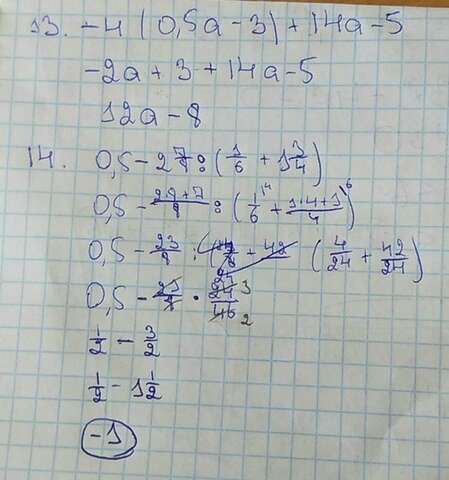 13. -4 (0,5a - 3) + 14a - 5
-2a + 3 + 14a - 5
12a - 8
14. 0,5 - 2 7/8 : (1/6 + 1 3/4)
0,5 - (2·8+7)/8 : (1/6 \4 + (1·4+3)/4 \6)
0,5 - 23/8 : (4/24 + 42/24)
0,5 - 23/8 · 24/46 3 2
1/2 - 3/2
1/2 - 1 1/2
-1